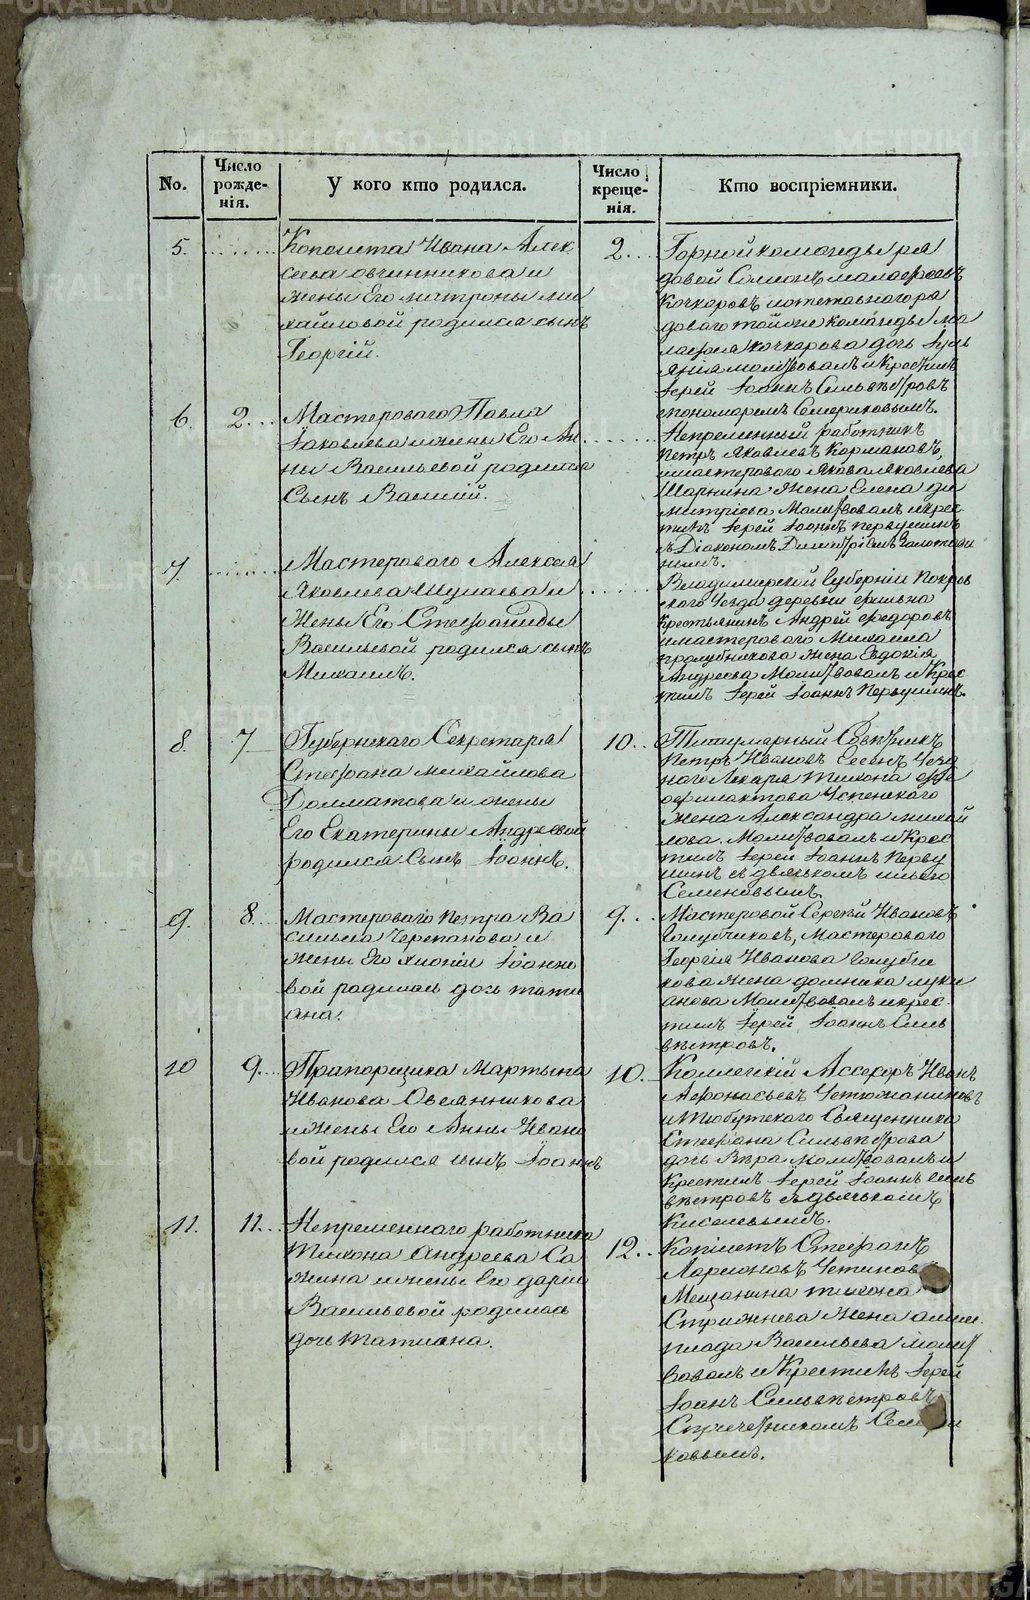 No.
Число рожде-нія.
У кого кто родился.
Число креще-нія.
Кто воспріемники.
5.
Копеиста Ивана Алек
сеева овчинникова и
жены Его матроны ми
хайловой родился сынъ
Георгій.
2...
Горной команды ря
довой Симонъ
Кочкаровъ и отставнаго ря
доваго тойже команды
кочкарова дочь
молитвовалъ и крестилъ
Іерей Іоаннъ Сильвестровъ
спономаремъ Семериковымъ.
6.
2...
Мастероваго Павла
Іаковлева и жены Его Ан
ны Васильевой родился
Сынъ Василій.
Непременный работникъ
Петръ Яковлевъ Кормановъ,
имастероваго Якова Яковлева
Шарнина Жена Елена ди
митріева Молитвовалъ икрес
тилъ Іерей Іоаннъ первушинъ
съ Діакономъ Димитріемъ Золотави
нымъ.
7.
Мастероваго Алексея
Яковлева Шушаева и
Жены Его Стефаниды
Васильевой родился сынъ
Михаилъ.
Владимирской Губерніи Покров
скаго Уезда деревни
Крестьянинъ Андрей федоровъ
имастероваго Михаила
пролубникова жена Евдокія
Андреева Молитвовалъ и Крес
тилъ Іерей Іоаннъ Первушинъ.
8.
7
Губернскаго Секретаря
Стефана михайлова
Долматова и жены
Его Екатерины Андреевой
родился Сынъ Іоаннъ.
10..
Титулярный Совѣтникъ
Петръ Ивановъ Есенъ Уезд
наго Лекаря Тихона фе
офилактова Успенскаго
жена Александра михай
лова. Молитвовалъ и Крес
тилъ Іерей Іоаннъ Перву
шинъ съ дьячкомъ ильею
Семеновымъ.
9.
8...
Мастероваго петра Ва
сильева Черепанова и
жены Его хионіи Іоанно
вой родилась дочь тати
ана.
9...
Мастеровой Сергей Ивановъ
Голубчиковъ, Мастероваго
Георгія Иванова Голубчи
кова жена домника луки
анова Молитвовалъ икрес
тилъ Іерей Іоаннъ Силь
вестровъ.
10
9...
Прапорщика Мартына
Иванова Овсянникова
и жены Его Анны Ивано
вой родился сынъ Іоаннъ
10.
Коллегскій Ассесоръ Иванъ
Афонасьевъ Четюжаниновъ
и Тюбутскаго Священника
Стефана Сильвестрова
дочь Вѣра молитвовалъ и
Крестилъ Іерей Іоаннъ силь
вестровъ съ дьячкомъ
Киселевымъ.
11.
11...
Непременнаго работника
Тихона Андреева Са
жина и жены Его дарьи
Васильевой родилась
дочь татиана.
12...
Копіистъ Стефанъ
Ларионовъ Четинов
Мещанина тихона
Стрижнева Жена олим
пиада Васильева молит
вовалъ и Крестилъ Іерей
Іоанъ Сильвестровъ
Спричетникомъ Семери
ковымъ.
METRIKI.GASO-URAL.RU